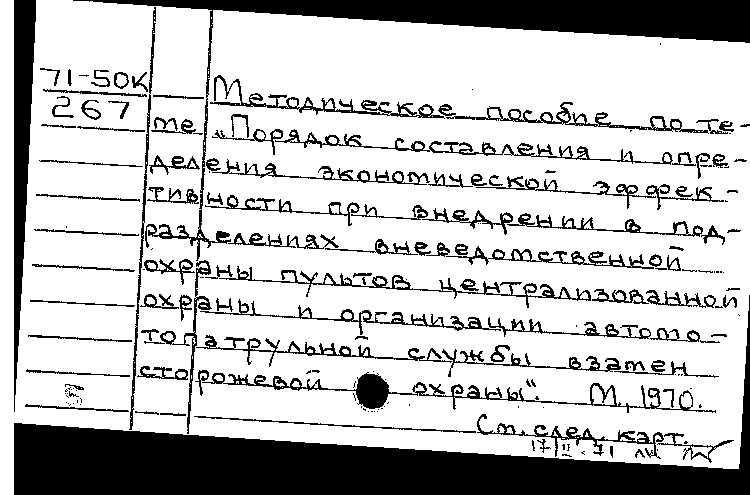 71-50К
267
Методическое пособие по те-
ме „Порядок составления и опре-
деления экономической эффек-
тивности при внедрении в под-
разделениях вневедомственной
охраны пультов централизованной
охраны и организации автомо-
топатрульной службы взамен
сторожевой охраны". М., 1970.
5
См. след. карт.
17/II-71